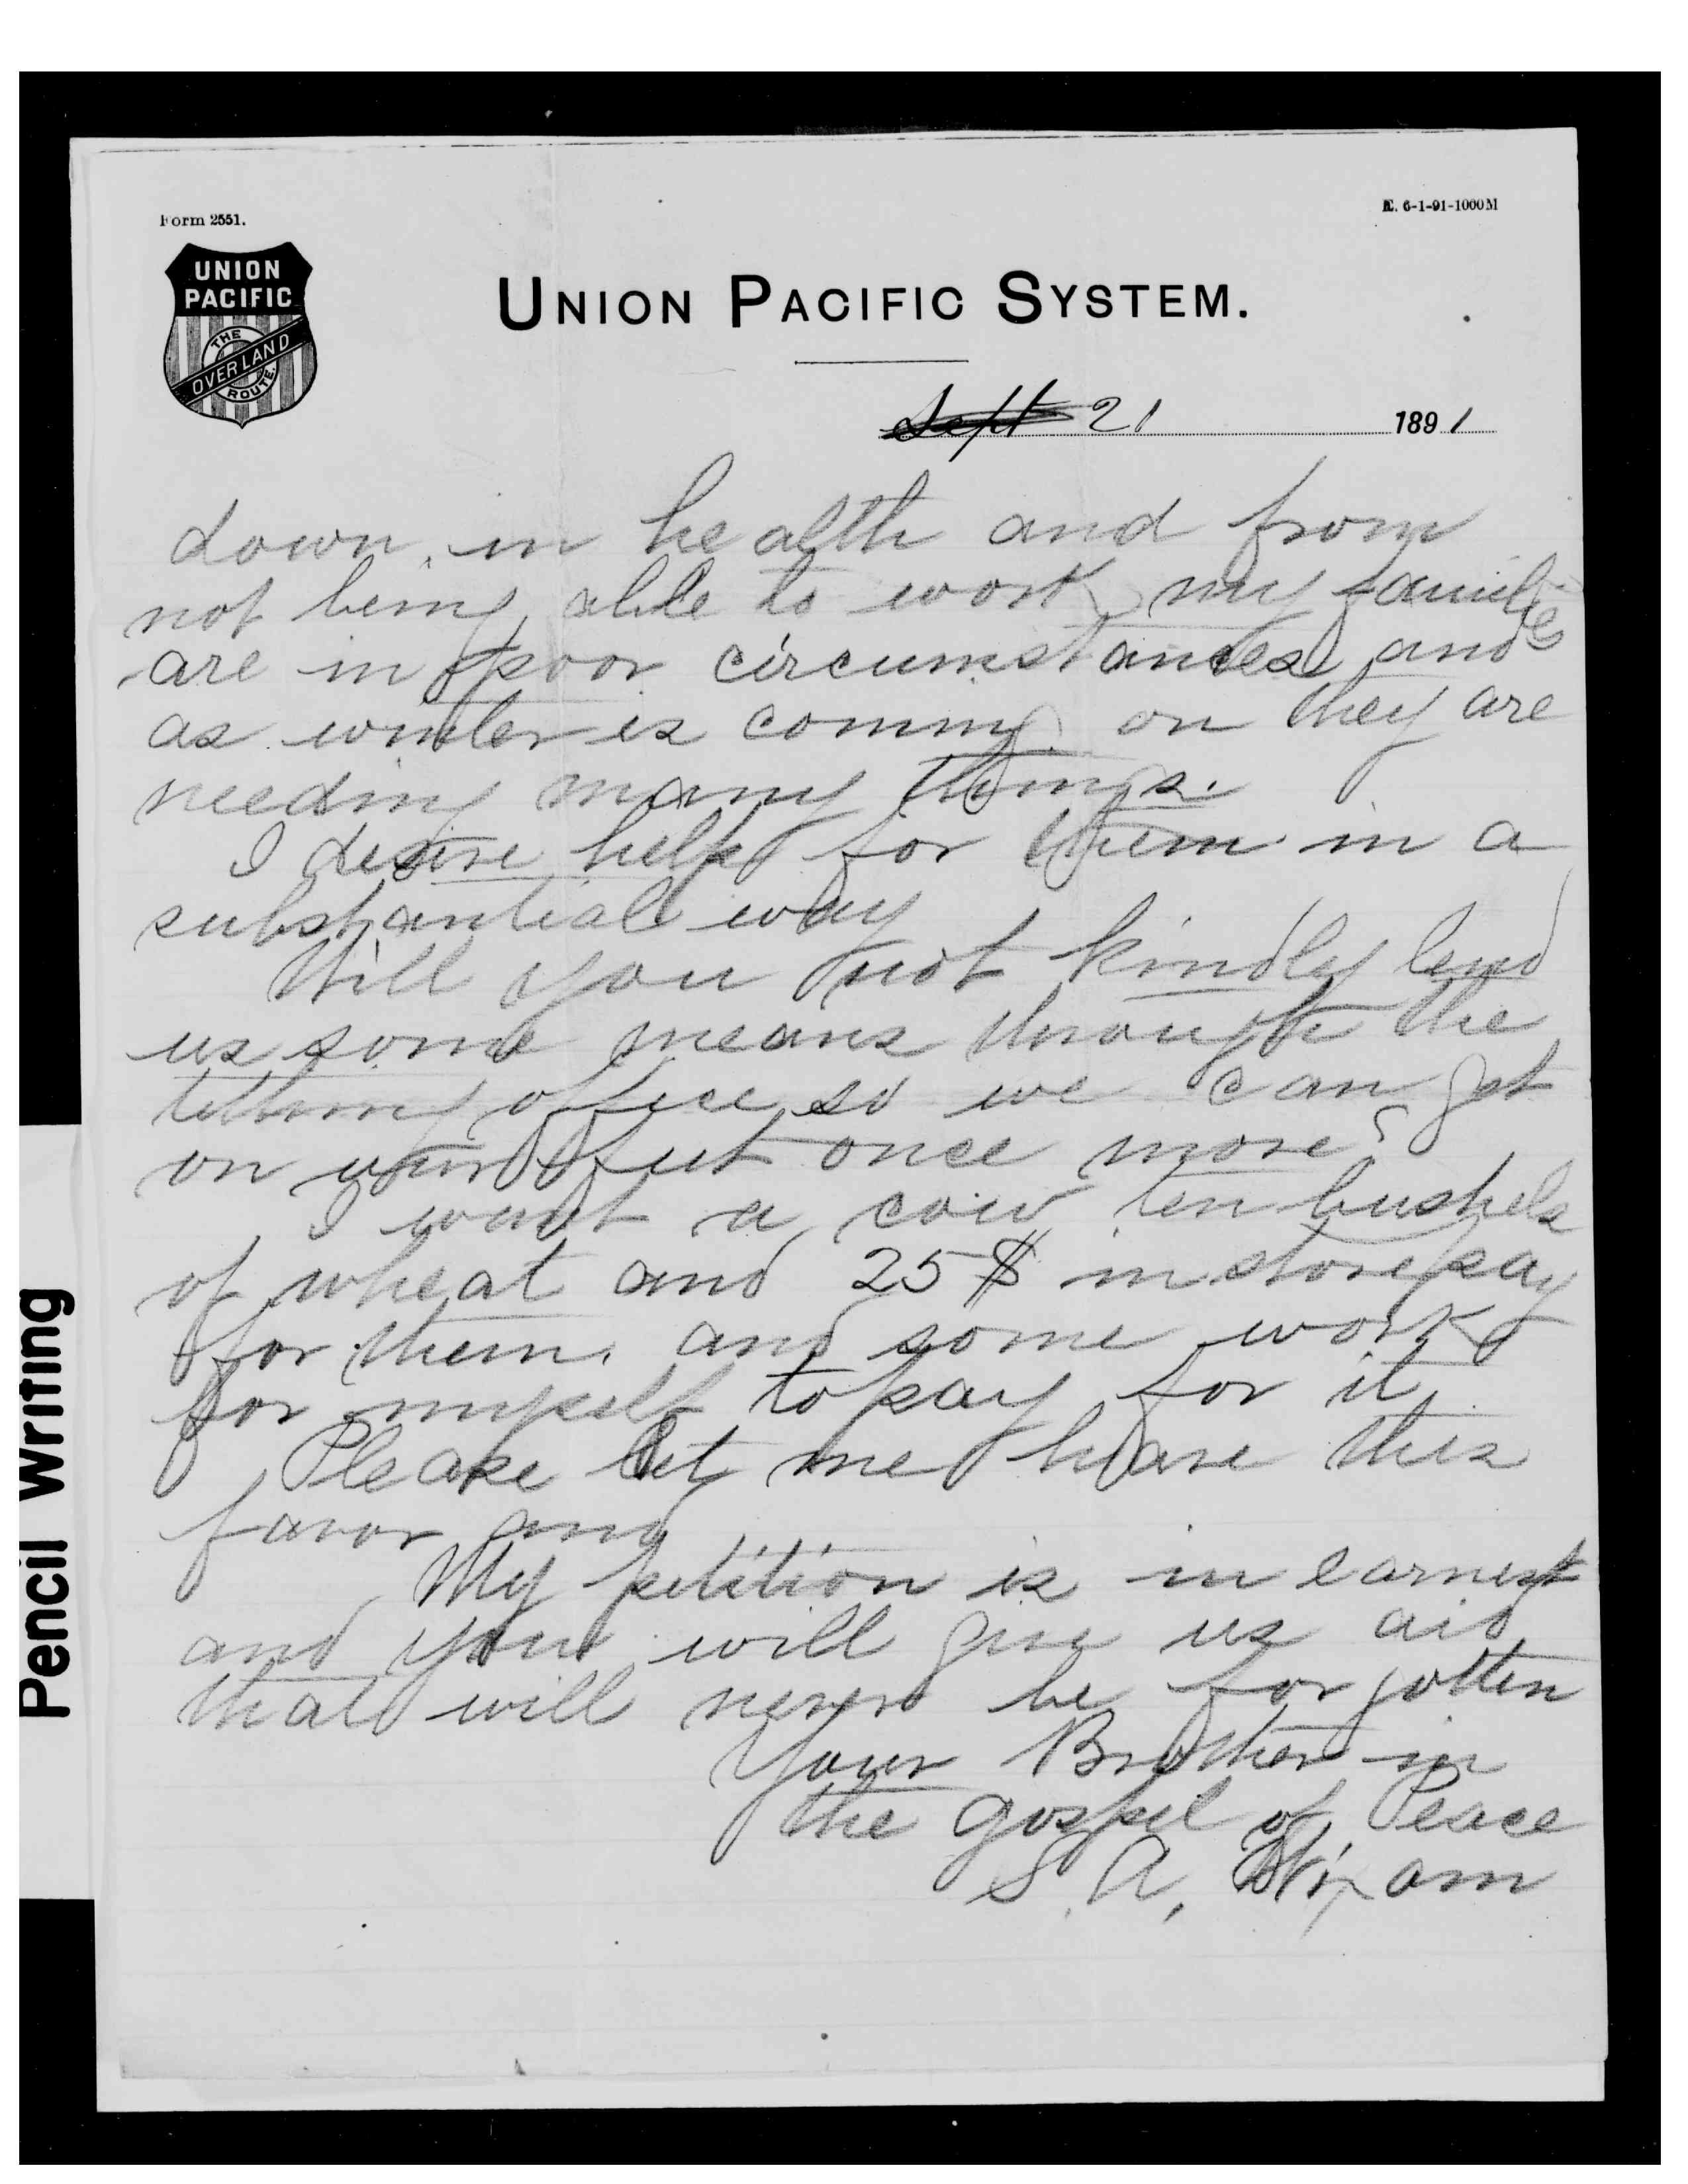 Form 2551.
E. 6-1-91-1000M
UNION
PACIFIC
THE
OVERLAND
ROUTE.
UNION PACIFIC SYSTEM.
Sept 21 1891
down in health and from
not being able to work my families
are in poor circumstances and
as winter is coming on they are
needing many things.
I desire help for them in a
substantial way
Will you not kindly lend
us some means through the
tithing office so we can get
on our feet once more?
I want a cow ten bushels
of wheat and 25$ in store pay
for them and some work
for myself to pay for it.
Please let me have this
favor and
My petition is in earnest
and you will give us aid
that will never be forgotten
Your Brother in
the gospel of Peace
S. A.
Pencil Writing